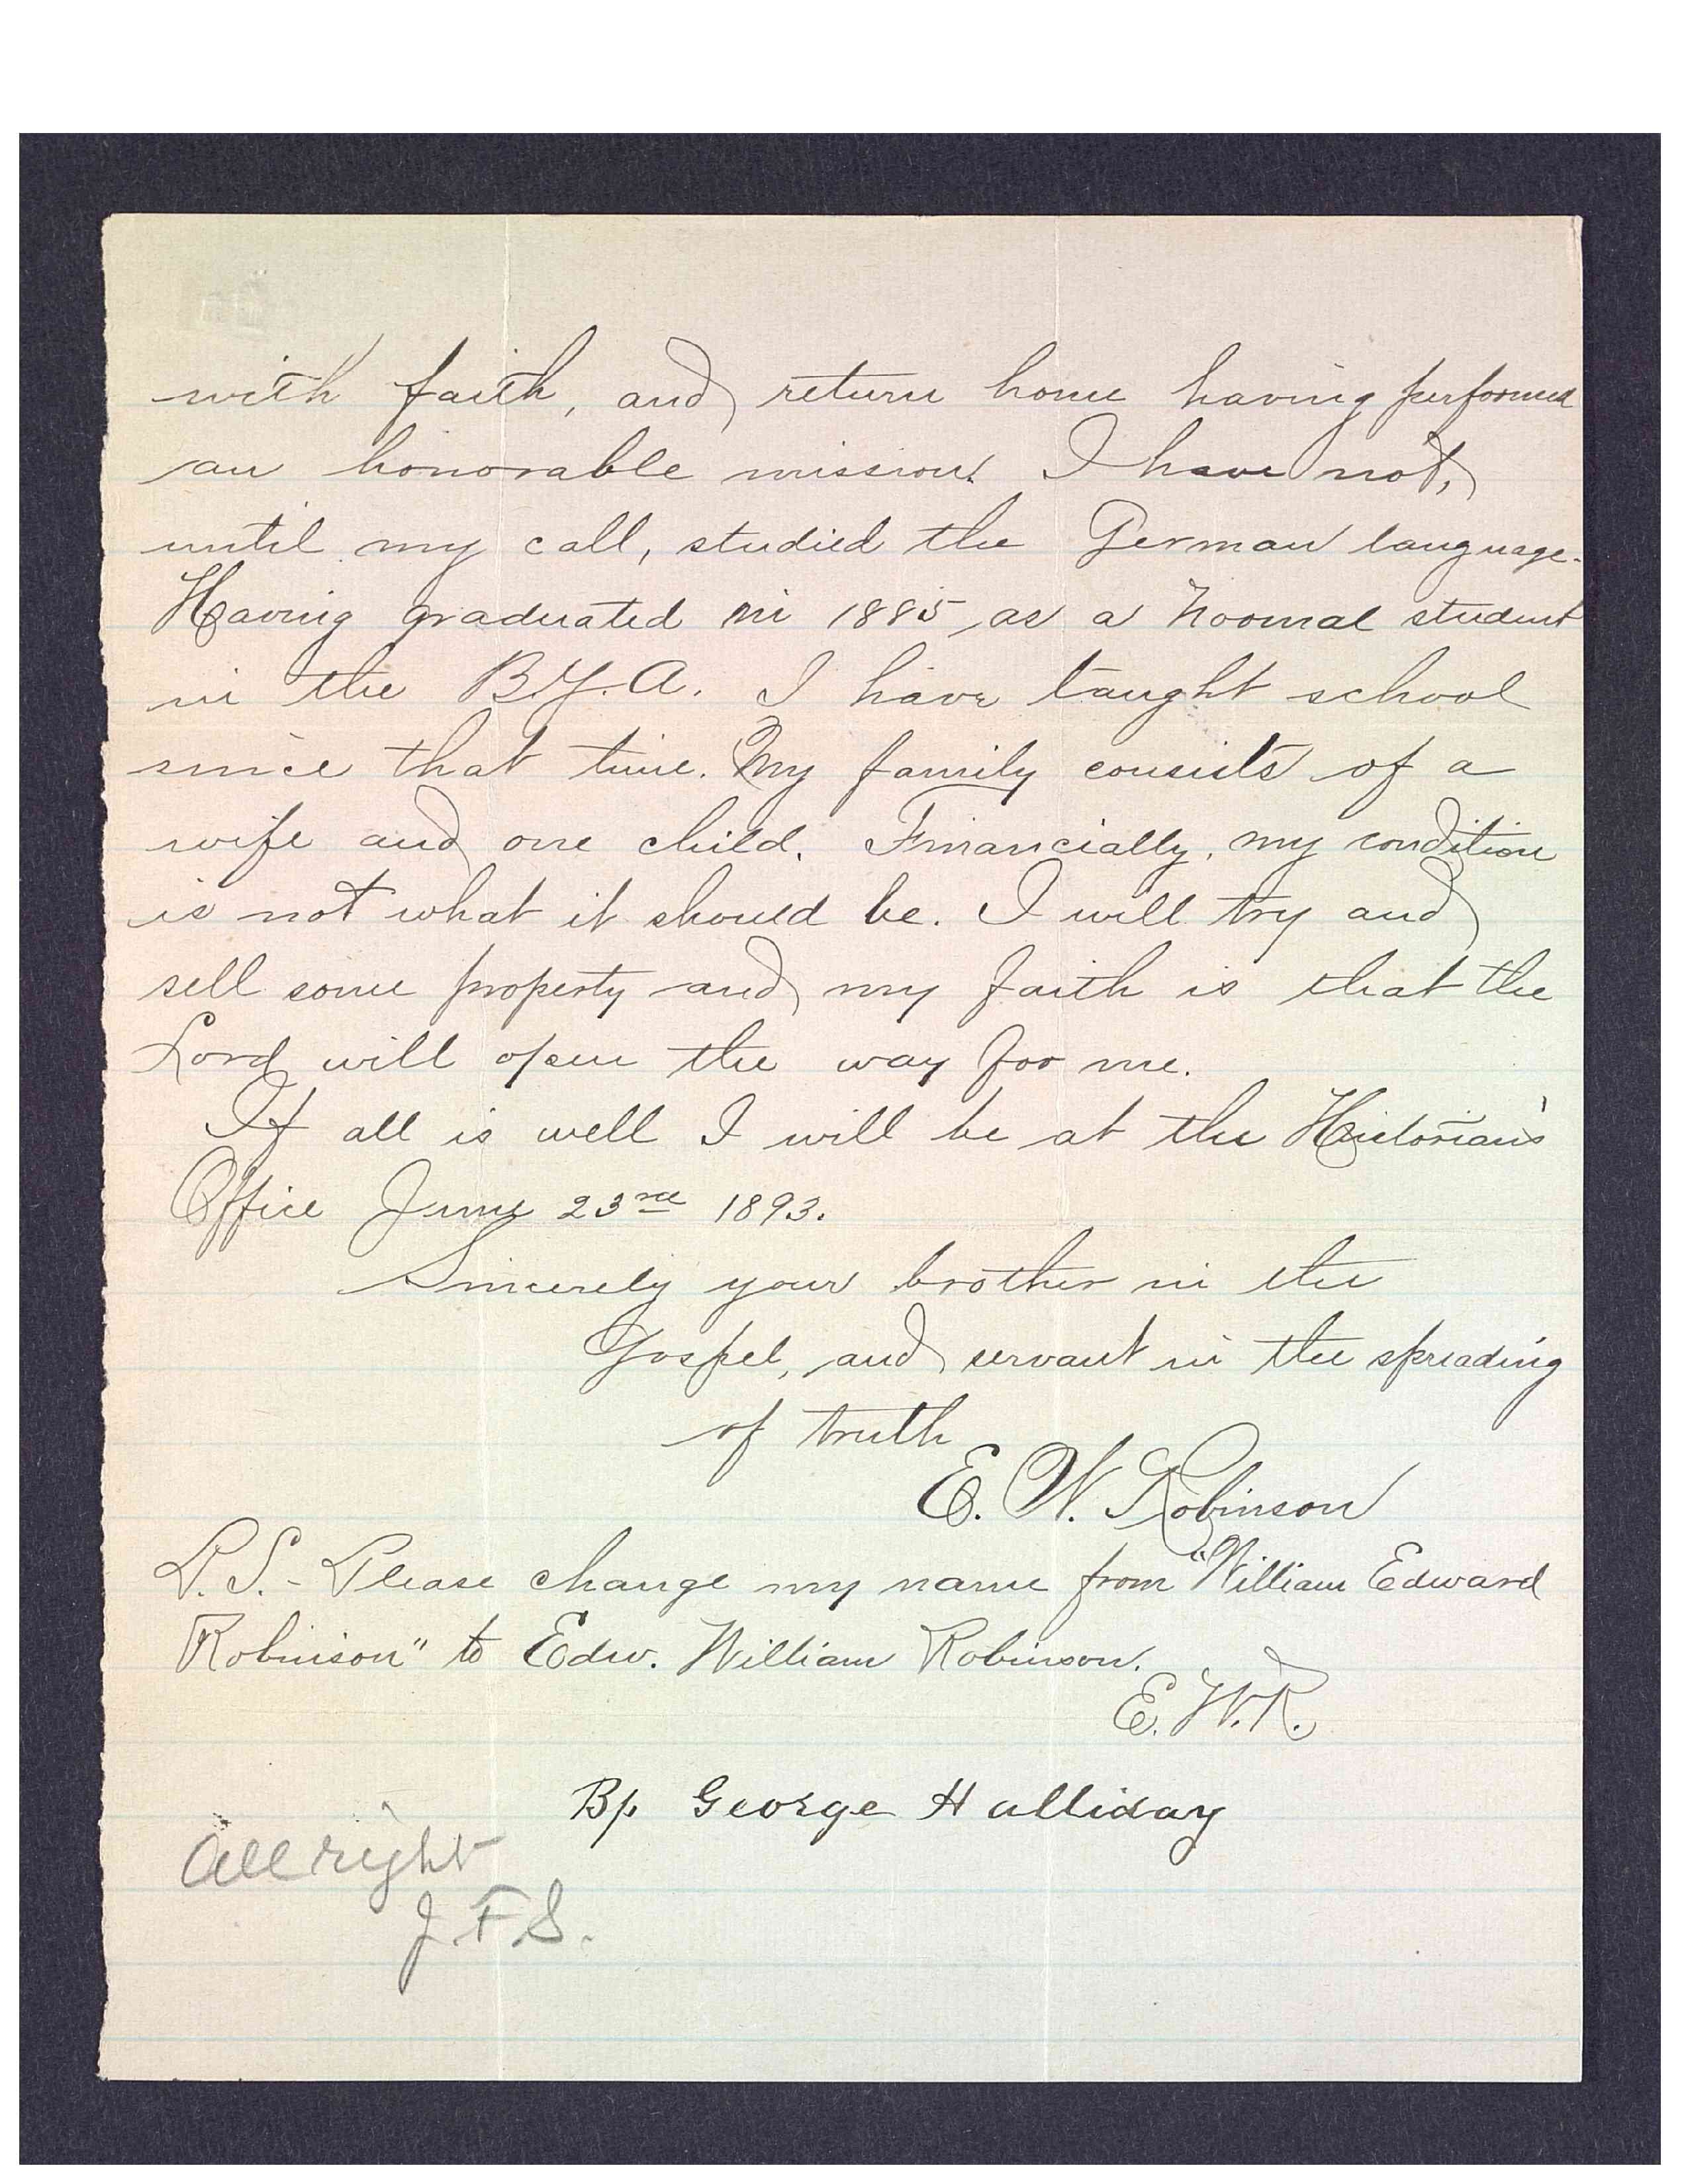 with faith, and return home having performed
an honorable mission. I have not,
until my call, studied the German language.
Having graduated in 1885 as a Normal student
in the B.Y.A. I have taught school
since that time. My family consists of a
wife and one child. Financially, my condition
is not what it should be. I will try and
sell some property and my faith is that the
Lord will open the way for me.
If all is well I will be at the Historian's
Office June 23rd 1893.
Sincerely your brother in the
Gospel, and servant in the spreading
of truth
E. W. Robinson
P.S. - Please change my name from "William Edward
Robinson" to Edw. William Robinson.
E.W.R.
Bp George Halliday
All right
J.F.S.